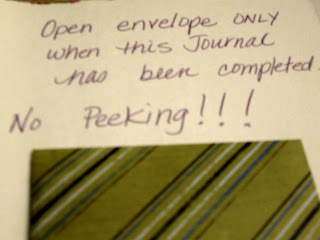 Open envelope ONLY
when this Journal
has been completed.
No Peeking!!!